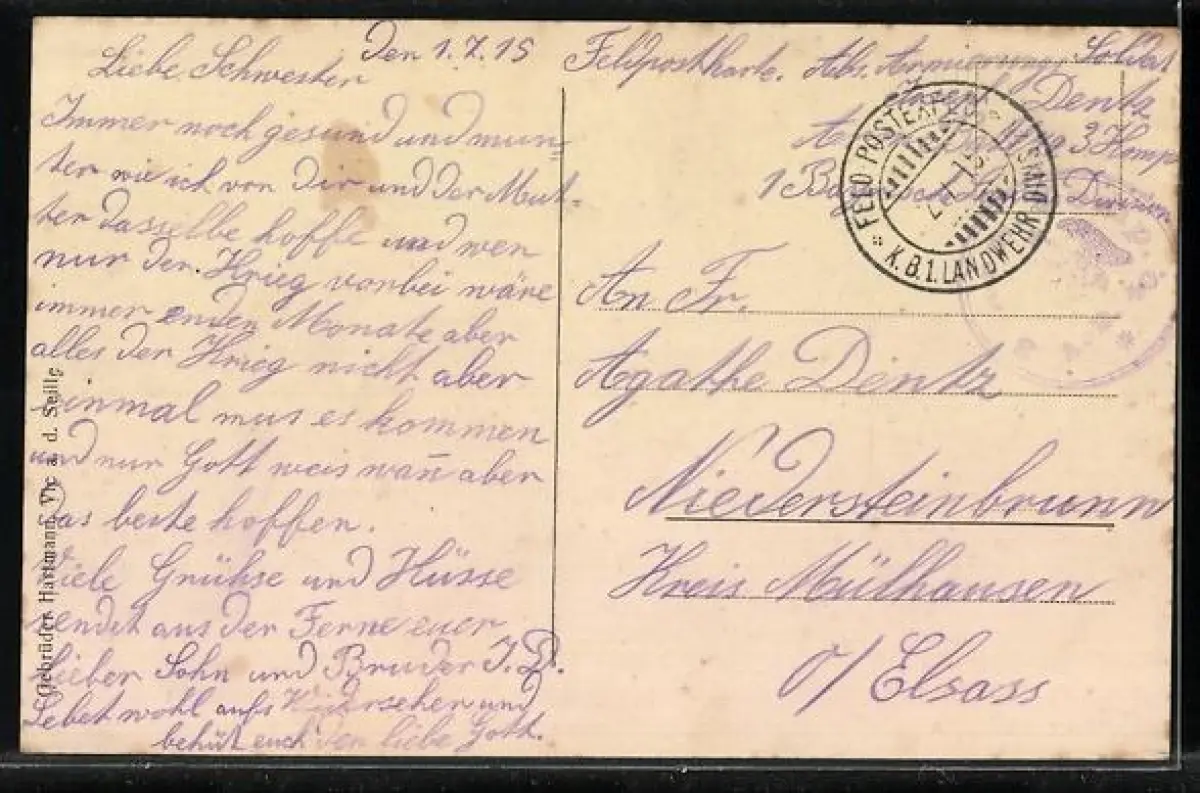 Den 1.7.15
Liebe Schwester
Immer noch gesund und mun=
ter wie ich von Dir und der Mut=
ter dasselbe hoffe und wen
nur der Krieg vorbei wäre
immer enden Monate aber
alles der Krieg nicht aber
einmal mus es kommen
und nur Gott weis wan̄ aber
das beste hoffen.
Viele Grühse und Küsse
sendet aus der Ferne euer
lieber Sohn und Bruder J. D.
Lebet wohl aufs Widersehen und
behüt euch der liebe Gott.
Gebrüder Hartmann, Vic a. d. Seille
Feldpostkarte. Abs. Armierung Soldat
Dentz
3 Komp
1 Bay Division
FELD POSTEXPED
K.B.1.LANDWEHR DIVIS.
An Fr.
Agathe Dentz
Niedersteinbrunn
Kreis Mülhausen
o/ Elsass